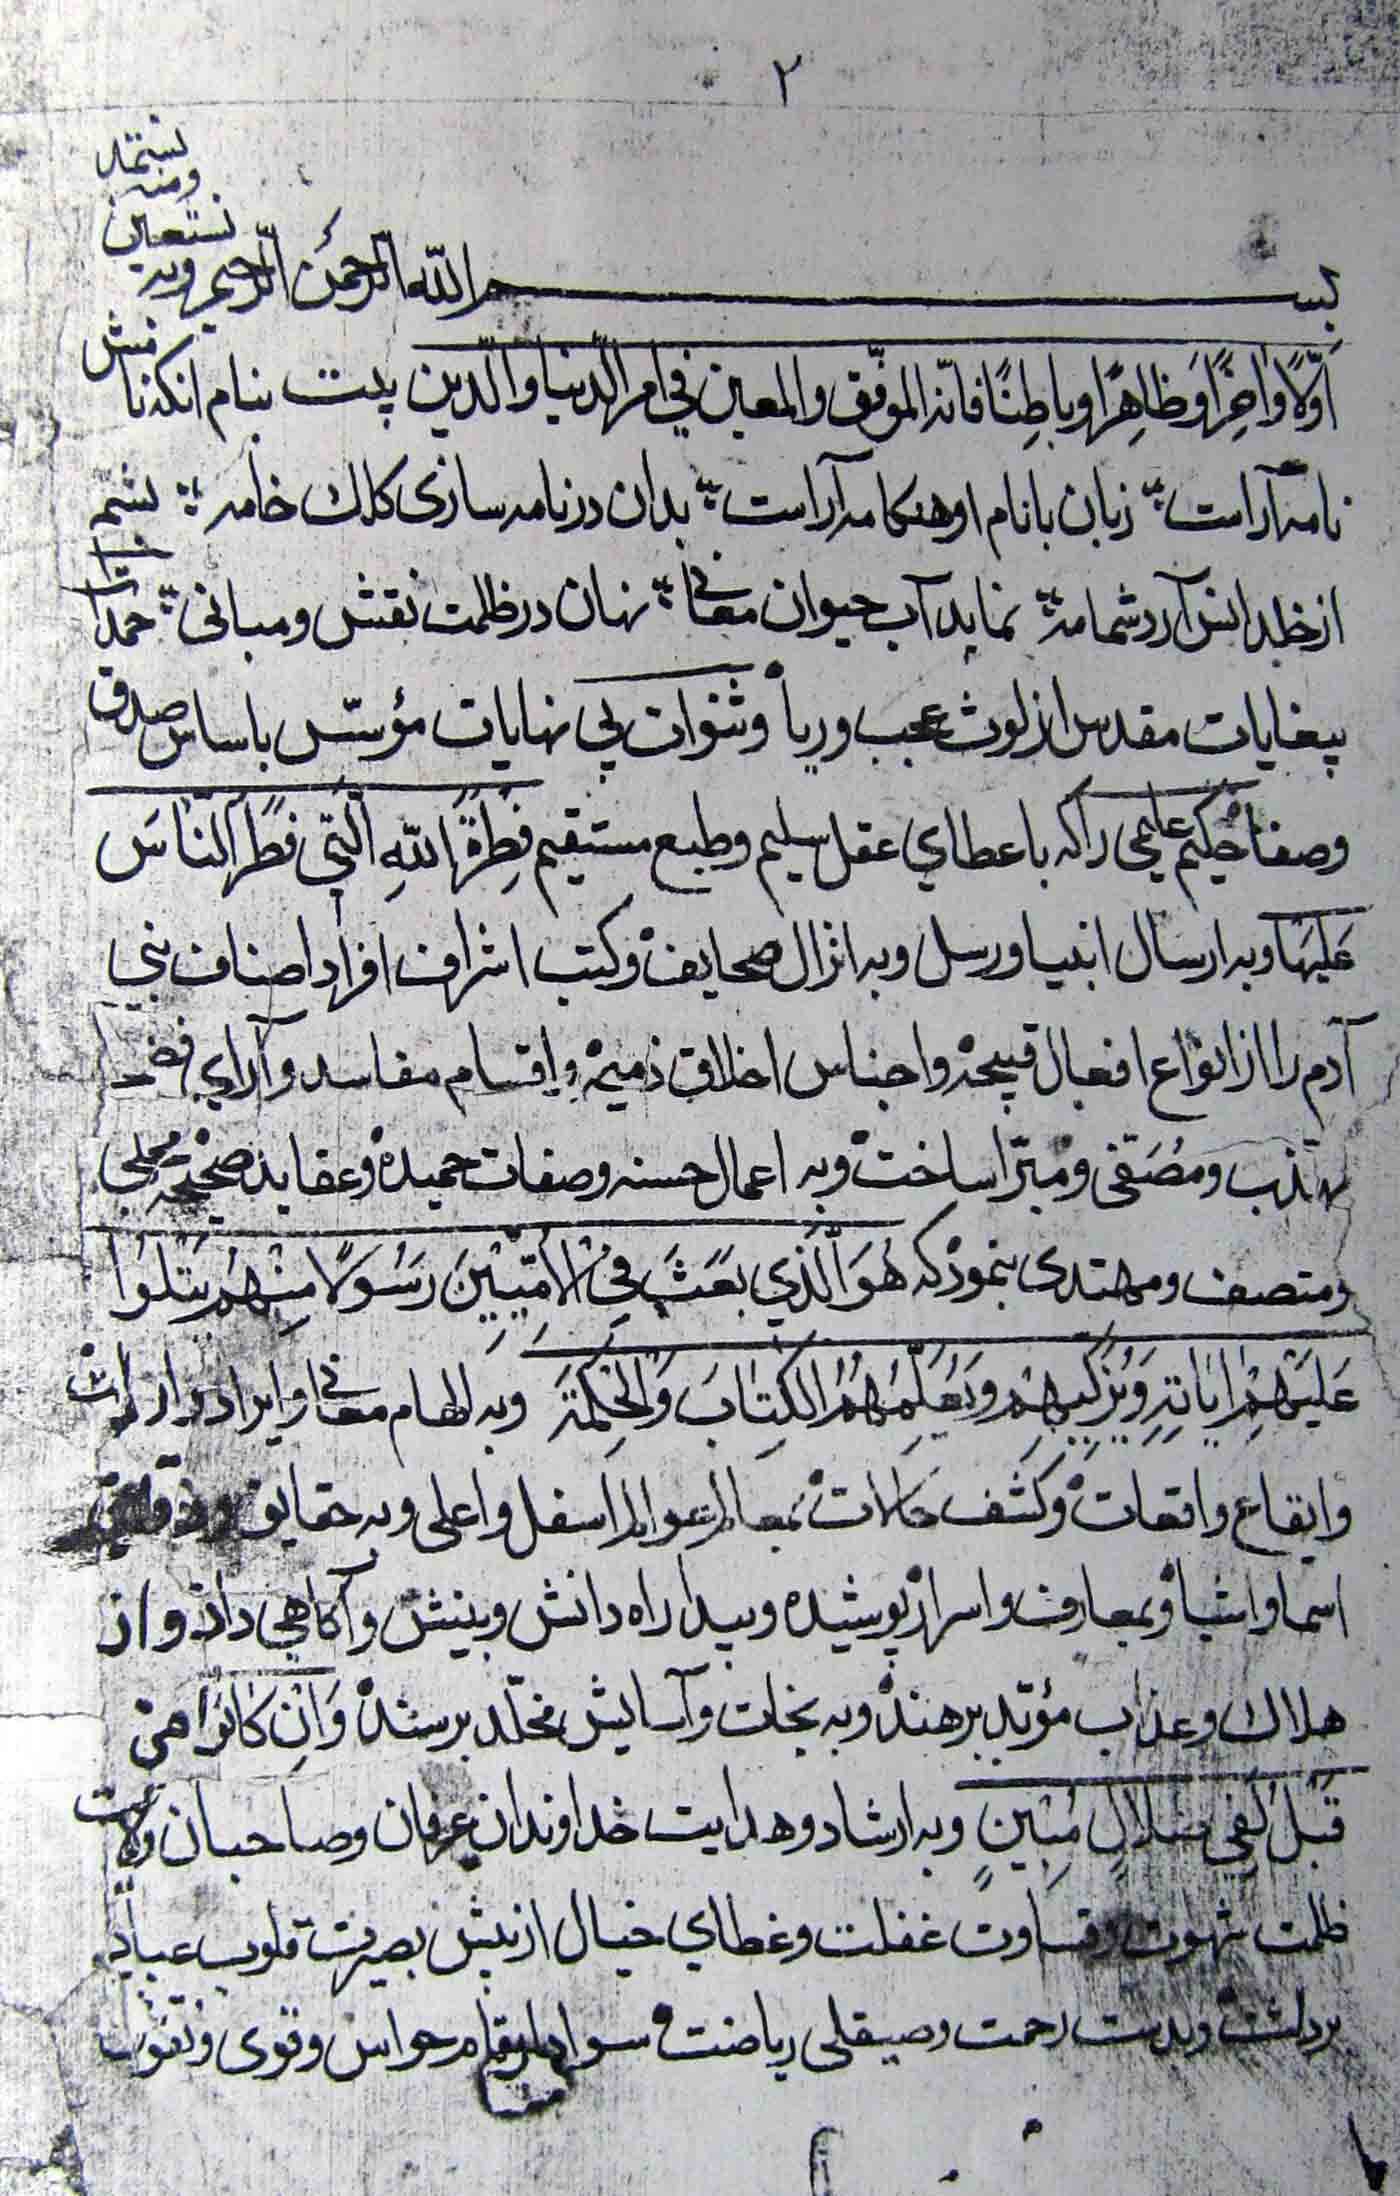 ۲
بسم الله الرحمن الرحیم وبه نستعین ومنه نستمد
اَوّلًا وَاخِرًا وَظاهِرًا وباطِنًا فانّه الموفّق والمعین فی امر الدّنیا والدّین بیت بنام انکه نامش
نامه آراست زبان با نام او هنکامه آراست بدان در نامه سازی کلک خامه نسیم
از خلد انس آرد شمامه نماید آب حیوان معانی نهان در ظلمت نقش و مبانی حمدات
بیغایات مقدس از لوث عجب وریا وثنوات بی نهایات مؤسّس باساس صدق
وصفا حکیم علیمی را که باعطای عقل سلیم وطبع مستقیم فِطرَةَ اللهِ الَّتی فَطَرَ النّاسَ
عَلَیهَا وبه ارسال انبیا ورسل وبه انزال صحایف وکتب اشراف افراد اصناف بنی
آدم را از انواع افعال قبیحه واجناس اخلاق ذمیمه واقسام مفاسد وآرای
مهذب ومصَفّی ومبرّا ساخت وبه اعمال حسنه وصفات حمیده وعقاید صحیحه محلی
ومتصف ومهتدی بنمود که هُوَ الَّذی بَعَثَ فِی الاُمّیّینَ رَسُولًا مِنهُم یَتلُوا
عَلَیهِم ایاتِهِ وَیُزَکّیهِم وَیُعَلِّمُهُمُ الکِتابَ وَالحِکمَةَ وبه الهام معانی وایراد واردات
وایقاع واقعات وکشف حالات بمعالم عوالم اسفل واعلی وبه حقایق ودقایق
اسما واشیا وبمعارف واسرار پوشیده وپیدا راه دانش وبینش وآکاهی داد واز
هلاک وعذاب مؤبّد برهند وبه نجات وآسایش مخلّد برسند وَاِن کانُوا مِن
قَبلُ لَفی ضَلالٍ مُبینٍ وبه ارشاد وهدایت خداوندان عرفان وصاحبان ولایت
ظلمت شهوت وقساوت غفلت وغطای خیال از پیش بصیرت قلوب عباد
برداشت وبدست رحمت وصیقلی ریاضت حواس وقوی ونقوش